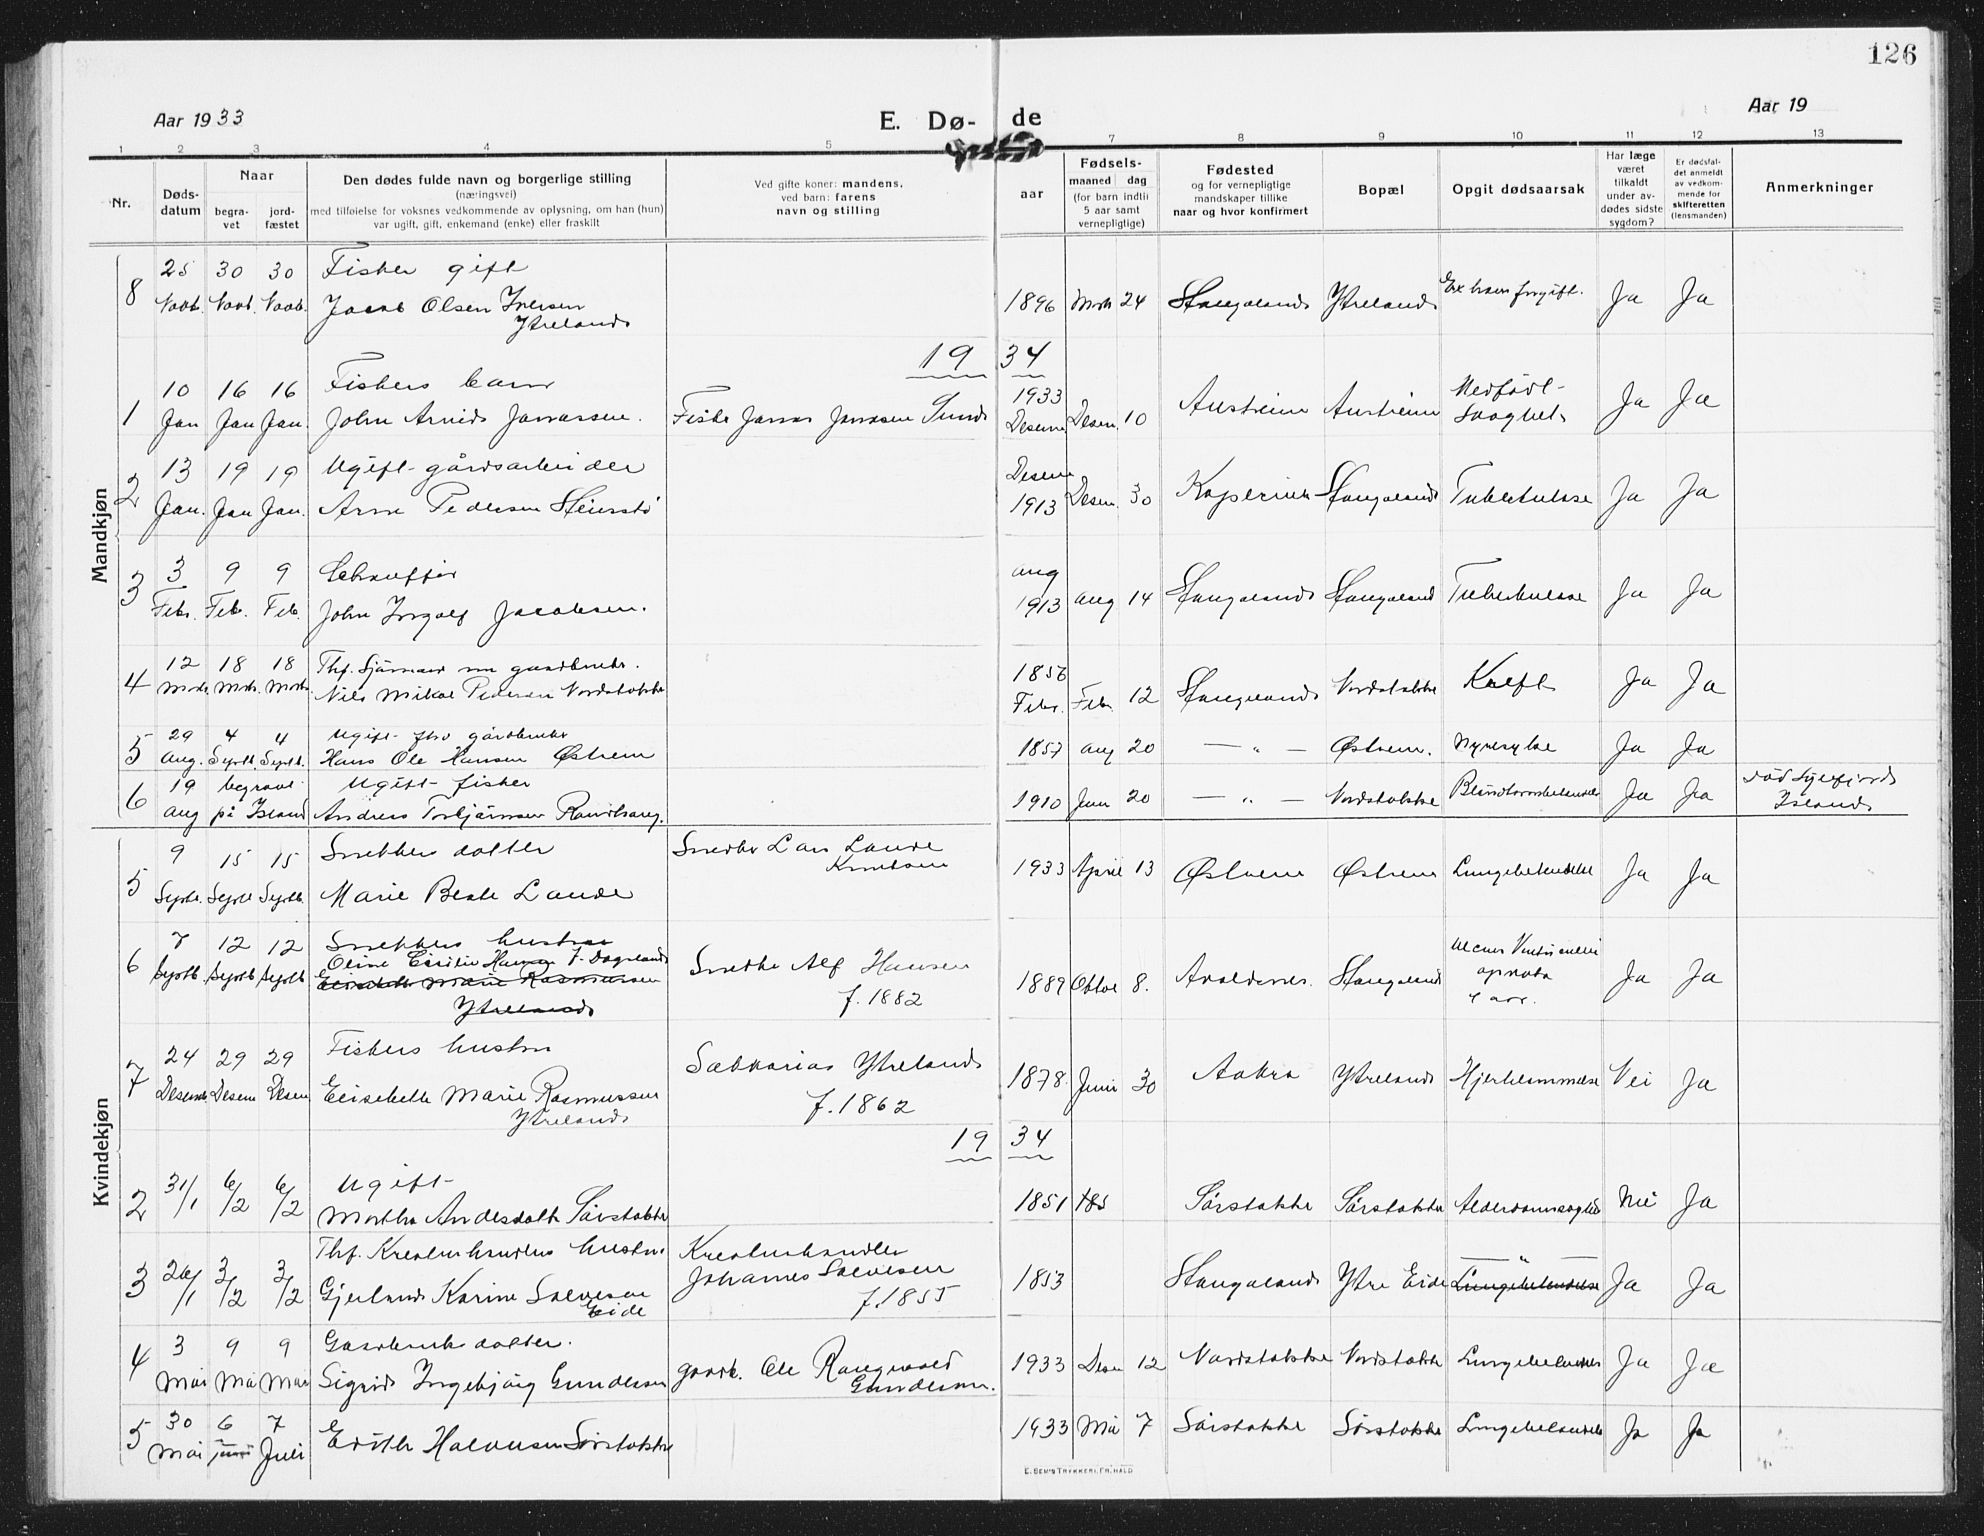 126
Aar 1933
E. Dø-
de
Aar 19
1 2 3 4 5 7 8 9 10 11 12 13
Nr.
Døds-
datum
Naar
begra-
vet
jord-
fæstet
Den dødes fulde navn og borgerlige stilling
(næringsvei)
med tilføielse for voksnes vedkommende av oplysning, om han (hun)
var ugift, gift, enkemand (enke) eller fraskilt
Ved gifte koner: mandens,
ved barn: farens
navn og stilling
aar
Fødsels-
maaned dag
(for barn indtil
5 aar samt
vernepligtige)
Fødested
og for vernepligtige
mandskaper tillike
naar og hvor konfirmert
Bopæl
Opgit dødsaarsak
Har læge
været
tilkaldt
under av-
dødes sidste
sygdom?
Er dødsfal-
det anmeldt
av vedkom-
mende for
skifteretten
(lensmanden)
Anmerkninger
Mandkjøn
25 30 30 Fisker gift
8 Novb. Novb. Novb. Jacob Olsen
Ytreland
1896 Mrch 24 Stangeland Ytreland Ja Ja
19 34
10 16 16 Fiskers barn
1 Jan Jan Jan. John Arvid Jonassen. Fisker Jonas Jonassen Sund
1933
Desem. Desem. 10 Austreim Austreim Medfødt
Svaghet Ja Ja
13 19 19 Ugift gårdsarbeider
2 Jan. Jan Jan. Arne Pedersen Steinstø
Desem
1913 Desem. 30 Kopervik Stangeland Tuberkulose Ja Ja
3 9 9 Schauffør
3 Febr. Feb. Feb. John Ingolf Jacobsen.
aug
1913 aug 14 Stangeland Stangeland Tuberkulose Ja Ja
12 18 18
4 Mrch. Mrch. Mrch. Nils Mikal Pedersen Nordstokke
1856
Febr. Feb. 12 Stangeland Nordstokke Kreft Ja Ja
29 4 4 Ugift fhv gårdbruker
5 Aug. Septb. Septb. Hans Ole Hansen Østrem
1857 aug 20 — „ — Østrem. Nyresyke Ja Ja
19 begravet Ugift fisker
6 aug på Island Andreas Torbjørnsen
1910 Juni 20 — „ — Nordstokke Blindtarmsbetendelse Ja Ja
Island
Kvindekjøn
9 15 15 Snekkers datter Snedker Lars Lande
Knutsen
5 Septb. Septb Septb. Marie Beate Lande
1933 April 13 Østrem Østrem Lungebetendelse Ja Ja
7 12 12 Snekkers hustru
6 Septb. Septb Septb Oline Cecilie Hansen f. Dagsland
Elisabeth Marie Rasmussen
Ytreland
Snedker Alf Hansen
f. 1882
1889 Oktob 8. Avaldsnes. Stangeland Ulcus Ventriculi
operata
Ja Ja
24 29 29 Fiskers hustru
7 Desemb Desem Desem Elisabeth Marie Rasmussen
Ytreland
Sakkarias Ytreland
f. 1862
1878. Juni 30 Aakra Ytreland Hjertelammelse Nei Ja
19 34
2 31/1 6/2 6/2 Ugift
Martha Andersdatter Sørstokke
1851 Sørstokke Sørstokke Nei Ja
3 26/1 3/2 3/2 Thf. Kreaturhandlers hustru
Karine Salvesen
Eide
Kreaturhandler
Johannes Salvesen
f. 1855
1853 Stangeland Ytre Eide — „ —
Lungebetendelse Ja Ja
3 9 9 Gaardbruk datter.
4 Mai Mai Mai Sigrid Ingebjørg Gundersen
gaardb. Ole Rangvald
Gundersen.
1933 Desem 12 Nordstokke Nordstokke Lungebetendelse Ja Ja
30 6 7
5 Mai juni Juli Edith Halvorsen Sørstokke
1933 Mai 7 Sørstokke Sørstokke Lungebetendelse Ja Ja
E. SEM'S TRYKKERI, FR.HALD